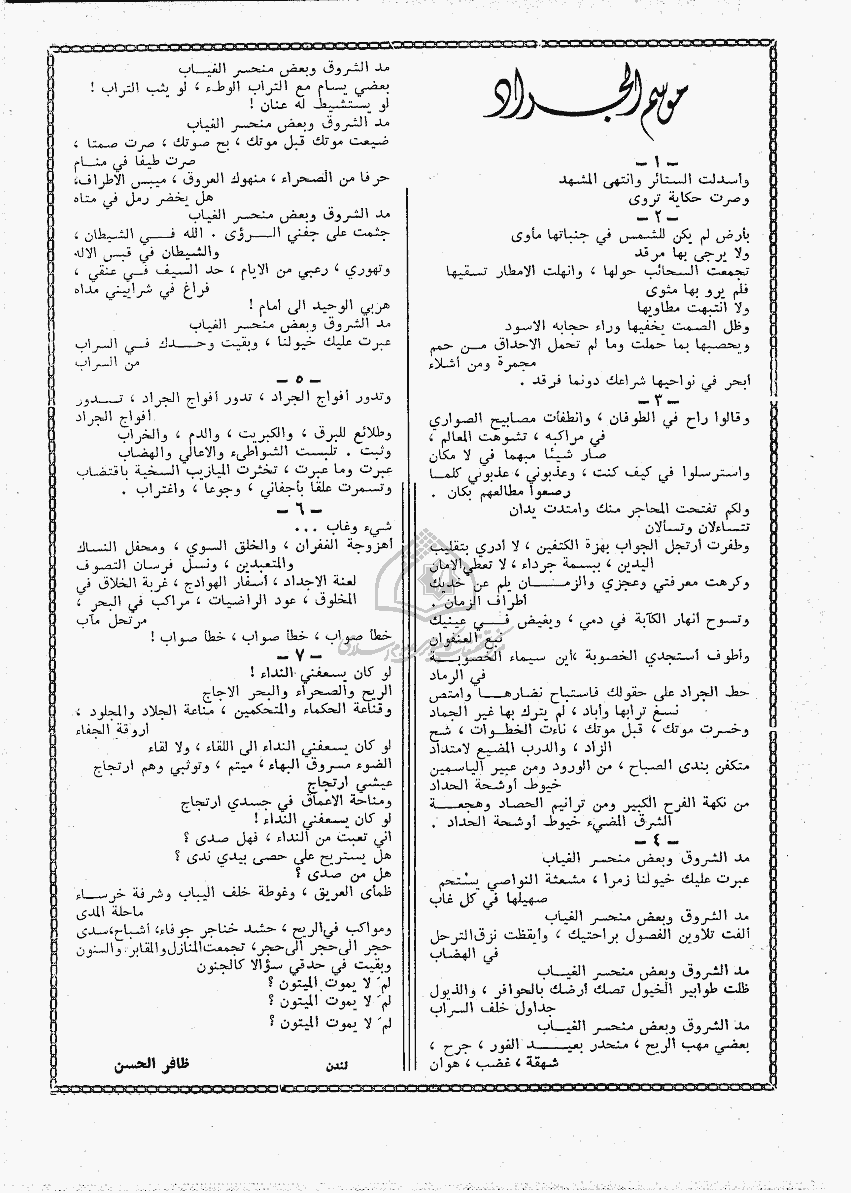 موسم الجراد
- ١ -
واسدلت الستائر وانتهى المشهد
وصرت حكاية تروى
- ٢ -
بأرض لم يكن للشمس في جنباتها مأوى
ولا يرجى بها مرقد
تجمعت السحائب حولها ، وانهلت الامطار تسقيها
فلم يرو بها مثوى
ولا انتبهت مطاويها
وظل الصمت يخفيها وراء حجابه الاسود
ويحصبها بما حملت وما لم تحمل الاحداق مــن حمم
مجمرة ومن أشلاء
أبحر في نواحيها شراعك دونما فرقد .
- ٣ -
وقالوا راح في الطوفان ، وانطفأت مصابيح الصواري
في مراكبه ، تشوهت المعالم ،
صار شيئا مبهما في لا مكان
واسترسلوا في كيف كنت ، وعذبوني ، عذبوني كلمــا
رصعوا مطالعهم بكان .
ولكم تفتحت المحاجر منك وامتدت يدان
تتساءلان وتسألان
وطفرت أرتجل الجواب بهزة الكتفين ، لا أدري بتقليب
اليدين ، ببسمة جرداء ، لا تعطي الامان
وكرهت معرفتي وعجزي والزمــــان يلم عن خديك
أطراف الزمان .
وتسوح أنهار الكآبة في دمي ، ويغيض فــــي عينيك
نبع العنفوان
وأطوف أستجدي الخصوبة ، أين سيماء الخصوبــــة
في الرماد
حط الجراد على حقولك فاستباح نضارهـــا وامتص
نسغ ترابها وأباد ، لم يترك بها غير الجماد
وخسرت موتك ، قبل موتك ، ناءت الخطــوات ، شح
الزاد ، والدرب المضيع لامتداد
متكفن بندى الصباح ، من الورود ومن عبير الياسمين
خيوط أوشحة الحداد
من نكهة الفرح الكبير ومن ترانيم الحصاد وهجعــــة
الشرق المضيء خيوط أوشحة الحداد .
- ٤ -
مد الشروق وبعض منحسر الغياب
عبرت عليك خيولنا زمرا ، مشعثة النواصي يستحم
صهيلها في كل غاب
مد الشروق وبعض منحسر الغياب
ألفت تلاوين الفصول براحتيك ، وأيقظت نزق الترحل
في الهضاب
مد الشروق وبعض منحسر الغياب
ظلت طوابير الخيول تصك أرضك بالحوافر ، والذيول
جداول خلف السراب
مد الشروق وبعض منحسر الغياب
بعضي مهب الريح ، منحدر بعيــــد الغور ، جرح ،
شهقة ، غضب ، هوان
مد الشروق وبعض منحسر الغيــاب
بعضي يسام مع التراب الوطء ، لو يثب التراب !
لو يستشيط له عنان !
مد الشروق وبعض منحسر الغياب
ضيعت موتك قبل موتك ، بح صوتك ، صرت صمتا ،
صرت طيفا في منــام
حرفا من الصحراء ، منهوك العروق ، ميبس الاطراف،
هل يخضر رمل في متاه
مد الشروق وبعض منحسر الغياب
جثمت على جفني الــرؤى . الله فــــي الشيطان ،
والشيطان في قبس الاله
وتهوري ، رعبي من الايام ، حد السيف فــي عنقي ،
فراغ في شراييني مداه
هربي الوحيد الى أمام !
مد الشروق وبعض منحسر الغياب
عبرت عليك خيولنا ، وبقيت وحــدك فــي السراب
من السراب
- ٥ -
وتدور أفواج الجراد ، تدور أفواج الجراد ، تــــدور
أفواج الجراد
وطلائع للبرق ، والكبريت ، والدم ، والخراب
وثبت . تلبست الشواطيء والاعالي والهضاب
عبرت وما عبرت ، تخثرت الميازيب السخية باقتضاب
وتسمرت علقا بأجفاني ، وجوعا ، واغتراب .
- ٦ -
شيء وغاب ...
أهزوجة الغفران ، والخلق السوي ، ومحفل النساك
والمتعبدين ، ونسل فرسان التصوف
لعنة الاجداد ، أسفار الهوادج ، غربة الخلاق في
المخلوق ، عود الراضيات ، مراكب في البحر ،
مرتحل مآب
خطأ صواب ، خطأ صواب ، خطأ صواب !
- ٧ -
لو كان يسعفني النداء !
الريح والصحراء والبحر الاجاج
وقناعة الحكماء والمتحكمين ، مناعة الجلاد والمجلود ،
أروقة الجفاء
لو كان يسعفني النداء الى اللقاء ، ولا لقاء
الضوء مسروق البهاء ، ميتم ، وتوثبي وهم ارتجاج
عيشي ارتجاج
ومناحة الاعماق في جسدي ارتجاج
لو كان يسعفني النداء !
اني تعبت من النداء ، فهل صدى ؟
هل يستريح على حصى بيدي ندى ؟
هل من صدى ؟
ظمأى العريق ، وغوطة خلف اليباب وشرفة خرســاء
ماحلة المدى
ومواكب في الريح ، حشد خناجر جوفاء، أشباح،سدى
حجر الى حجر الى حجر، تجمعت المنازل والمقابر والسنون
وبقيت في حدقي سؤالا كالجنون
لم لا يموت الميتون ؟
لم لا يموت الميتون ؟
لم لا يموت الميتون ؟
لندن
ظافر الحسن